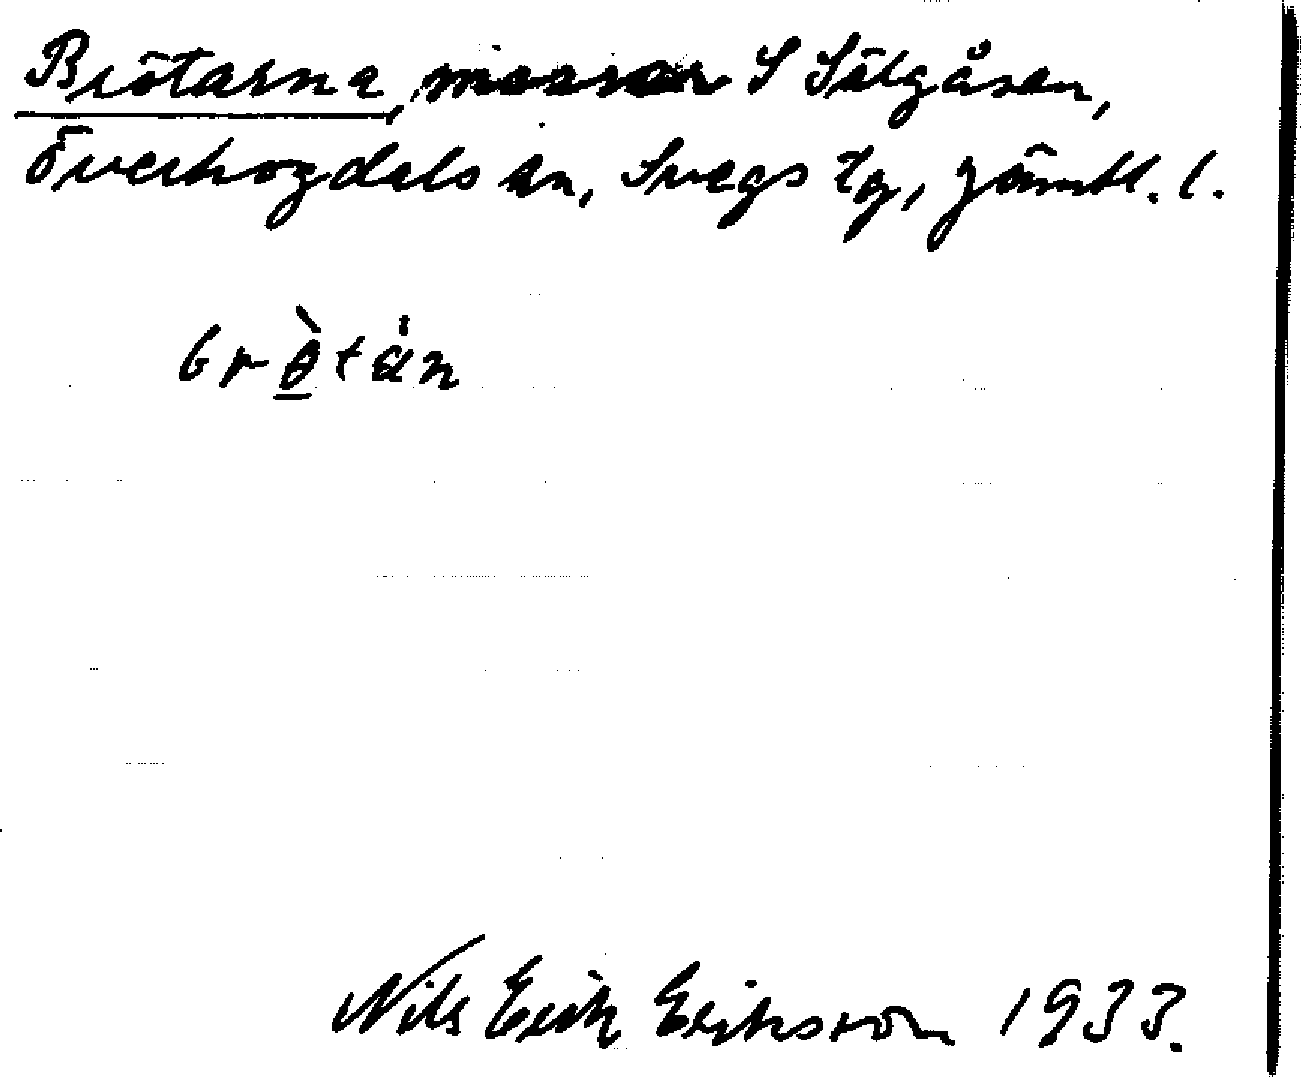 Brötarna, mossar S Sölgåsen,
Överhogdals sn, Svegs tg, Jämtl. l.
brə̀tan
Nils Erik Eriksson 1933.